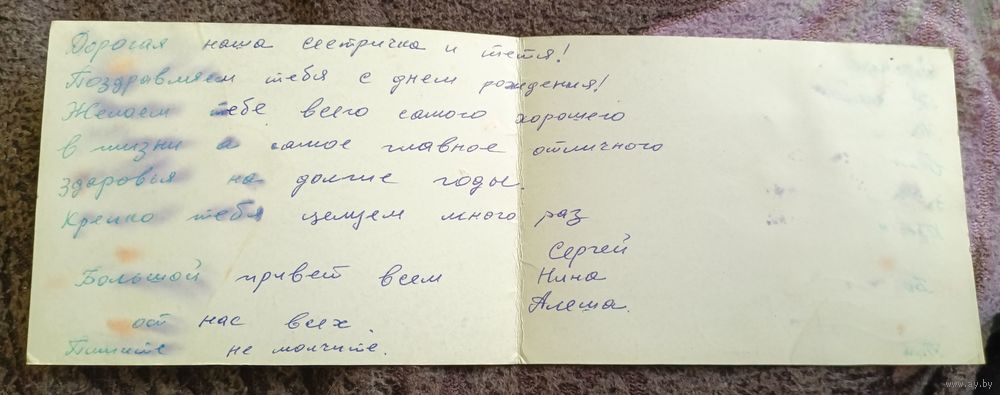 Дорогая наша сестричка и тётя!
Поздравляем тебя с днем рождения!
Желаем тебе всего самого хорошего
в жизни а самое главное отличного
здоровья на долгие годы.
Крепко тебя целуем много раз
Сергей
Нина
Алеша.
Большой привет всем
от нас всех.
Пишите не молчите.
www.ay.by